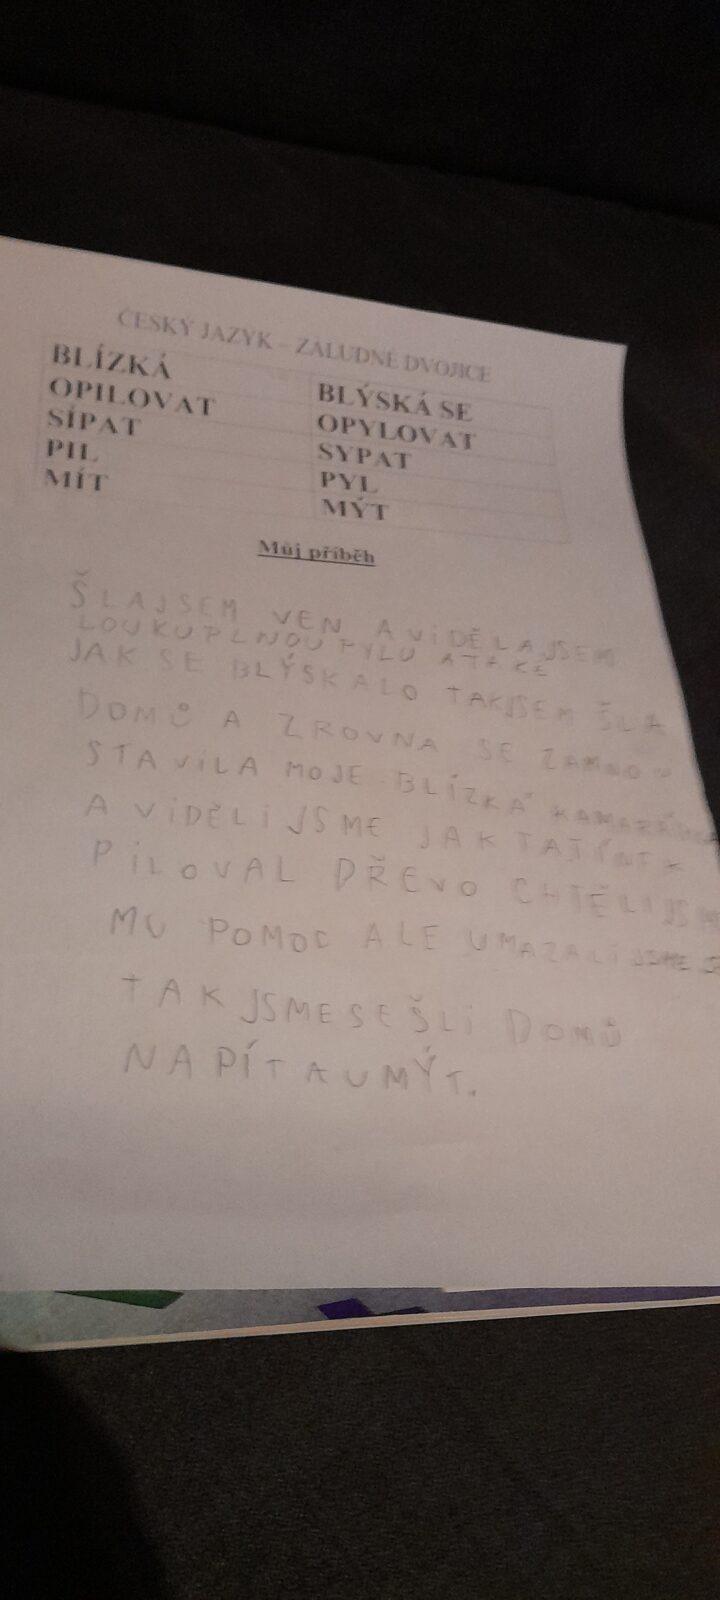 ČESKÝ JAZYK – ZÁLUDNÉ DVOJICE
BLÍZKÁ BLÝSKÁ SE
OPILOVAT OPYLOVAT
SÍPAT SYPAT
PIL PYL
MÍT MÝT
Můj příběh
ŠLAJSEM VEN A ViDĚLAJSEM
LOUKUPLNOU PYLU ATAKÉ
JAK SE BLÝSKALO TAKJSEM ŠLA
DOMŮ A ZROVNA SE ZAMNOU
STAViLA MOJE BLÍZKÁ
A ViDĚLiJSME JAK TATÍNEK
PiLOVAL DŘEVO CHTĚLiJSME
MU POMOC ALE UMAZALiJSME
TAKJSMESEŠLi DOMŮ
NAPÍTAUMÝT.